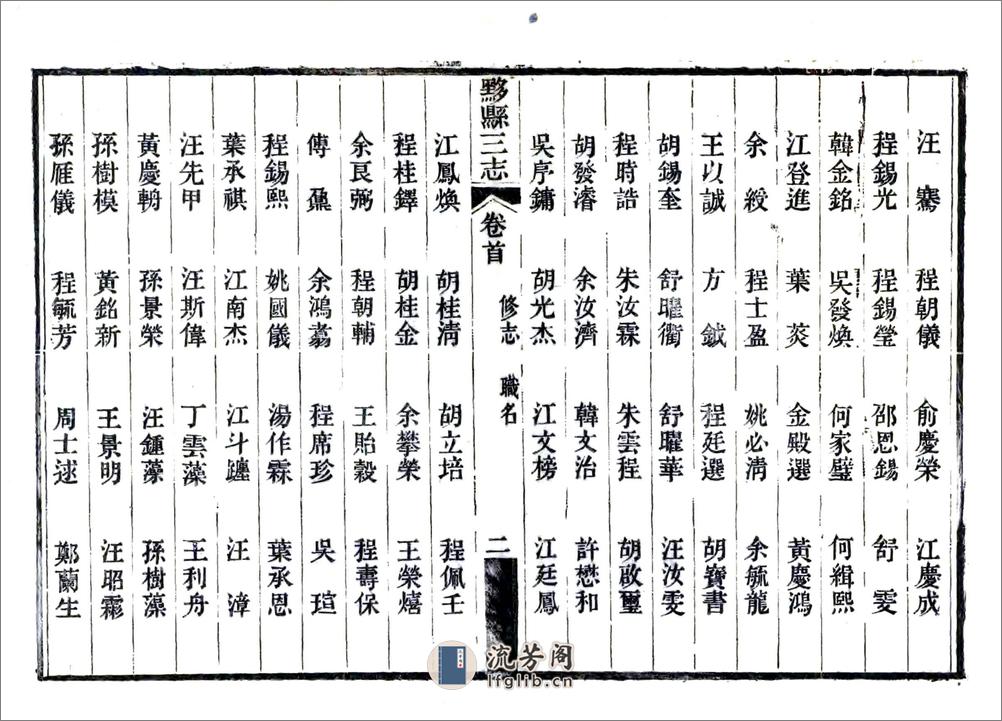 汪騫 程朝儀 俞慶榮 江慶成
程錫光 程錫瑩 邵恩錫 舒雯
韓金銘 吳發煥 何家璧 何緝熙
江登進 葉炎 金殿選 黃慶鴻
余綬 程士盈 姚必淸 余毓龍
王以誠 方鉞 程廷選 胡寶書
胡錫奎 舒曜衢 舒曜華 汪汝雯
程時誥 朱汝霖 朱雲程 胡啟璽
胡發濬 余汝濟 韓文治 許懋和
吳序鏞 胡光杰 江文榜 江廷鳳
黟縣三志 卷首 修志 職名 二
江鳳煥 胡桂淸 胡立培 程佩壬
程桂鐸 胡桂金 余攀榮 王榮熺
余艮弼 程朝輔 王貽穀 程壽保
傅鼐 余鴻翥 程席珍 吳瑄
程錫熙 姚國儀 湯作霖 葉承恩
葉承祺 江南杰 江斗躔 汪漳
汪先甲 汪斯偉 丁雲藻 王利舟
黃慶 孫景榮 汪鍾藻 孫樹藻
孫樹模 黃銘新 王景明 汪昭霖
孫雁儀 程毓芳 周士逑 鄭蘭生
流芳阁
lfglib.cn